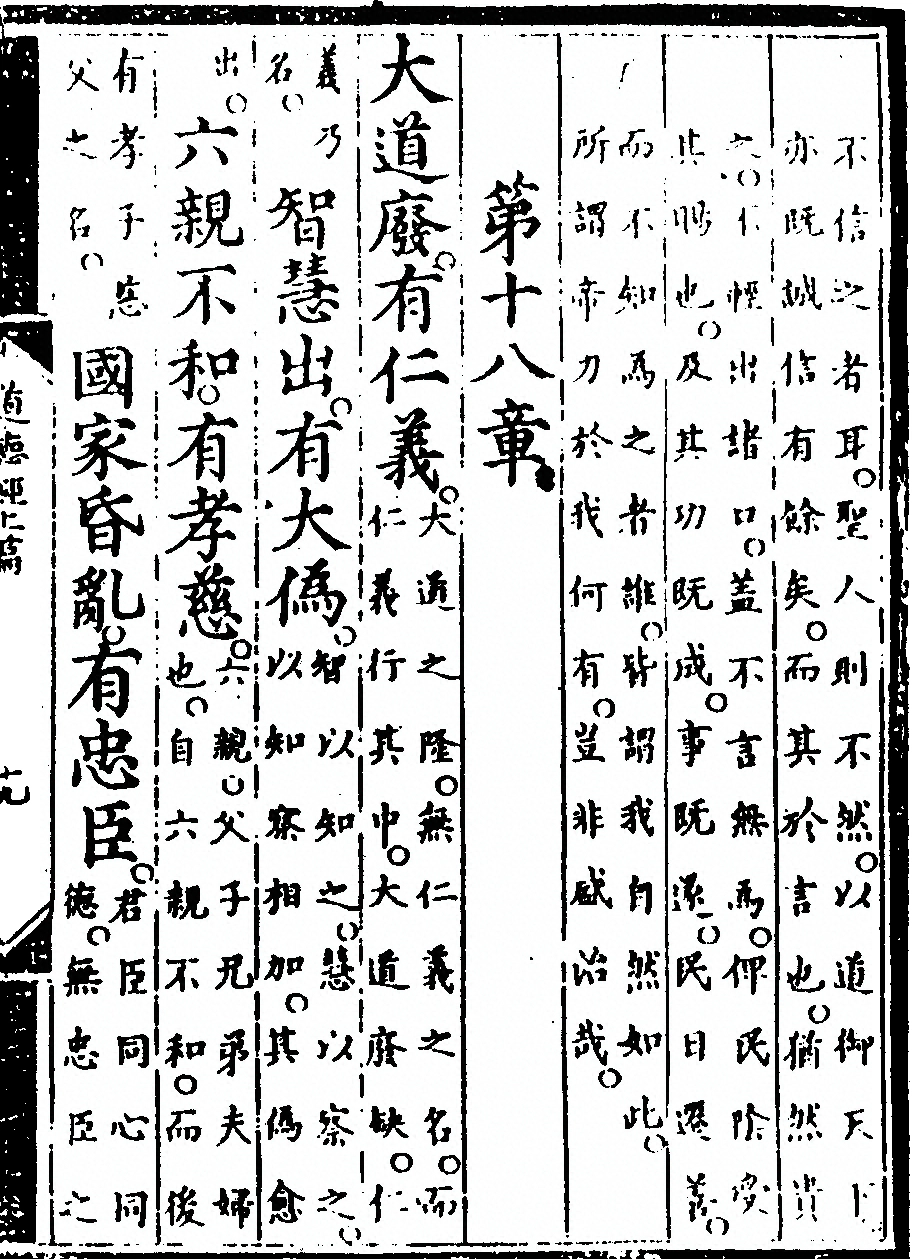 不信之者耳。聖人則不然。以道御天下
亦既誠信有餘矣。而其於言也。猶然貴
之。不輕出諸口。蓋不言無為。俾民陰受
其賜也。及其功既成。事既遂。民日遷善。
而不知為之者誰。皆謂我自然如此。
所謂帝力於我何有。豈非盛治哉。
第十八章
大道廢。有仁義。
大道之隆。無仁義之名。而
仁義行其中。大道廢缺。仁
義乃
名。
智慧出。有大偽。
智以知之。慧以察之。
以知察相加。其偽愈
出。
六親不和。有孝慈。
六親。父子兄弟夫婦
也。自六親不和。而後
有孝子慈
父之名。
國家昏亂。有忠臣。
君臣同心同
德。無忠臣之
道德經上篇
十九